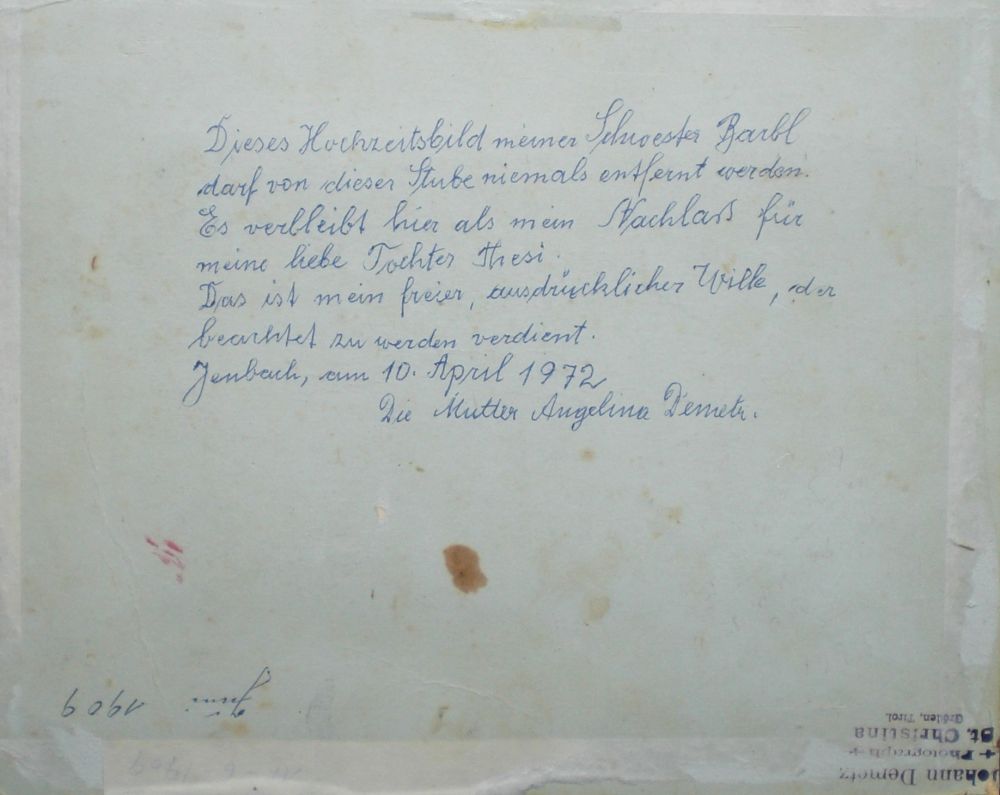 Dieses Hochzeitsbild meiner Schwester Barbl
darf von dieser Stube niemals entfernt werden.
Es verbleibt hier als mein Nachlaß für
meine liebe Tochter Thesi.
Das ist mein freier, ausdrücklicher Wille, der
beachtet zu werden verdient.
Jenbach, am 10. April 1972
Die Mutter Angelina Demetz.
Juni 1909
Johann Demetz
+ Photograph +
St. Christina
Gröden, Tirol.